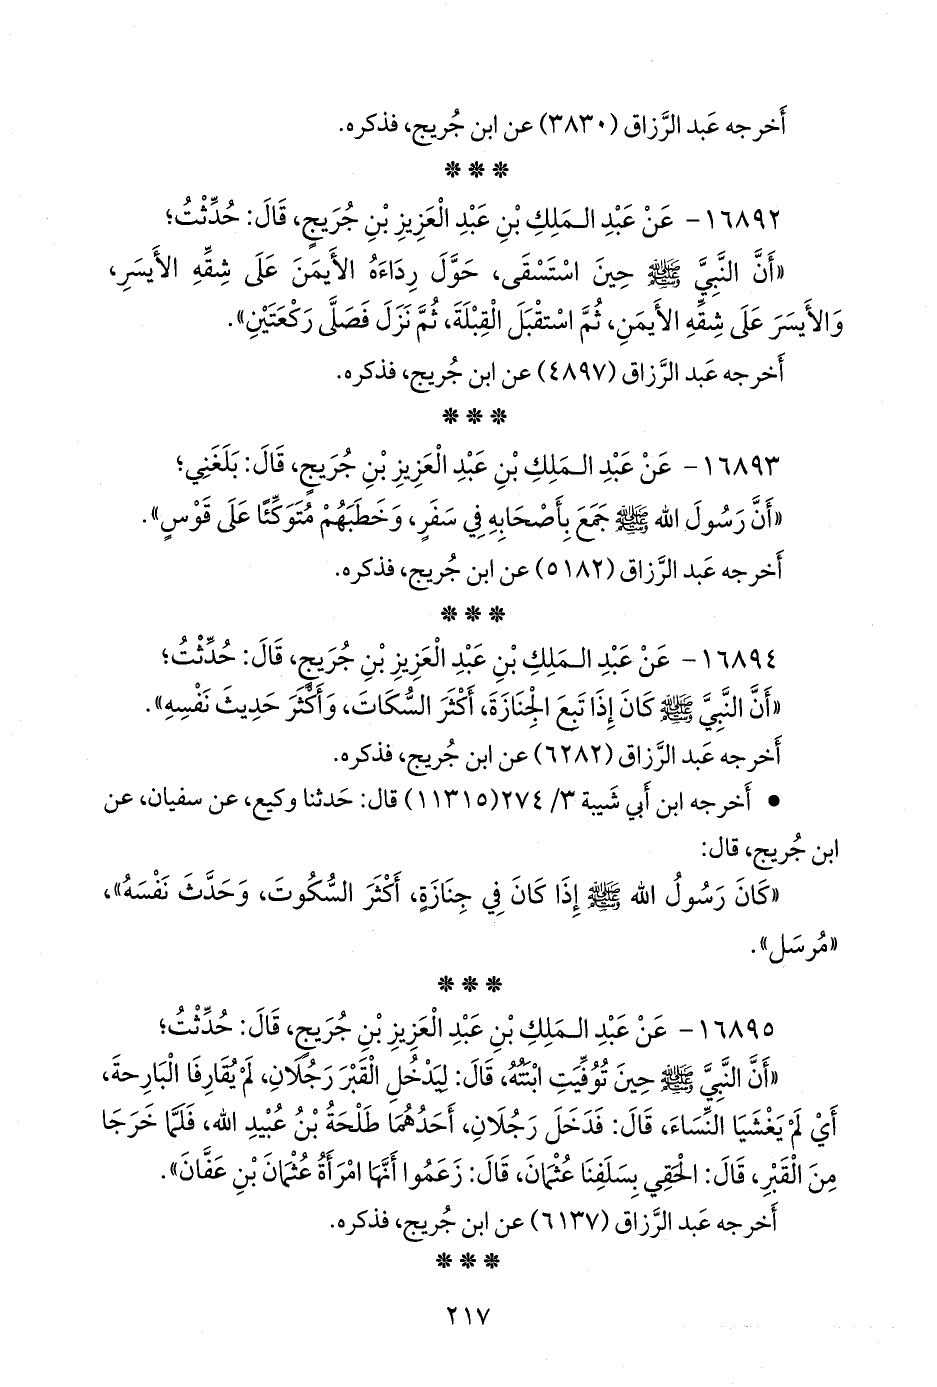 أَخرجه عَبد الرَّزاق (٣٨٣٠) عن ابن جُريج، فذكره.
* * *
١٦٨٩٢- عَنْ عَبْدِ الـمَلِكِ بْنِ عَبْدِ الْعَزِيزِ بْنِ جُرَيجٍ، قَالَ: حُدِّثْتُ؛
«أَنَّ النَّبِيَّ ﷺ حِينَ اسْتَسْقَى، حَوَّلَ رِدَاءَهُ الأَيمَنَ عَلَى شِقِّهِ الأَيسَرِ،
وَالأَيسَرَ عَلَى شِقِّهِ الأَيمَنِ، ثُمَّ اسْتقْبَلَ الْقِبْلَةَ، ثُمَّ نَزَلَ فَصَلَّى رَكْعَتَيْنِ».
أَخرجه عَبد الرَّزاق (٤٨٩٧) عن ابن جُريج، فذكره.
* * *
١٦٨٩٣- عَنْ عَبْدِ الـمَلِكِ بْنِ عَبْدِ الْعَزِيزِ بْنِ جُرَيجٍ، قَالَ: بَلَغَنِي؛
«أَنَّ رَسُولَ الله ﷺ جَمَعَ بِأَصْحَابِهِ فِي سَفَرٍ، وَخَطَبَهُمْ مُتَوَكِّئًا عَلَى قَوْسٍ».
أَخرجه عَبد الرَّزاق (٥١٨٢) عن ابن جُريج، فذكره.
* * *
١٦٨٩٤- عَنْ عَبْدِ الـمَلِكِ بْنِ عَبْدِ الْعَزِيزِ بْنِ جُرَيجٍ، قَالَ: حُدِّثْتُ؛
«أَنَّ النَّبِيَّ ﷺ كَانَ إِذَا تَبِعَ الْجِنَازَةَ، أَكْثَرَ السُّكَاتَ، وَأَكْثَرَ حَدِيثَ نَفْسِهِ».
أَخرجه عَبد الرَّزاق (٦٢٨٢) عن ابن جُريج، فذكره.
• أَخرجه ابن أَبي شَيبة ٣/ ٢٧٤(١١٣١٥) قال: حَدثنا وكيع، عن سفيان، عن
ابن جُريج، قال:
«كَانَ رَسُولُ الله ﷺ إِذَا كَانَ فِي جِنَازَةٍ، أَكْثَرَ السُّكُوتَ، وَحَدَّثَ نَفْسَهُ»،
«مُرسَل».
* * *
١٦٨٩٥- عَنْ عَبْدِ الـمَلِكِ بْنِ عَبْدِ الْعَزِيزِ بْنِ جُرَيجٍ، قَالَ: حُدِّثْتُ؛
«أَنَّ النَّبِيَّ ﷺ حِينَ تُوُفِّيَتِ ابْنَتُهُ، قَالَ: لِيَدْخُلِ الْقَبْرَ رَجُلَانِ، لَمْ يُقَارِفَا الْبَارِحةَ،
أَيْ لَمْ يَغْشَيَا النِّسَاءَ، قَالَ: فَدَخَلَ رَجُلَانِ، أَحَدُهُمَا طَلْحَةُ بْنُ عُبَيْدِ الله، فَلَمَّا خَرَجَا
مِنَ الْقَبْرِ، قَالَ: الْحَقِي بِسَلَفِنَا عُثْمَانَ، قَالَ: زَعَمُوا أَنَّهَا امْرَأَةُ عُثْمَانَ بْنِ عَفَّانَ».
أَخرجه عَبد الرَّزاق (٦١٣٧) عن ابن جُريج، فذكره.
* * *
٢١٧